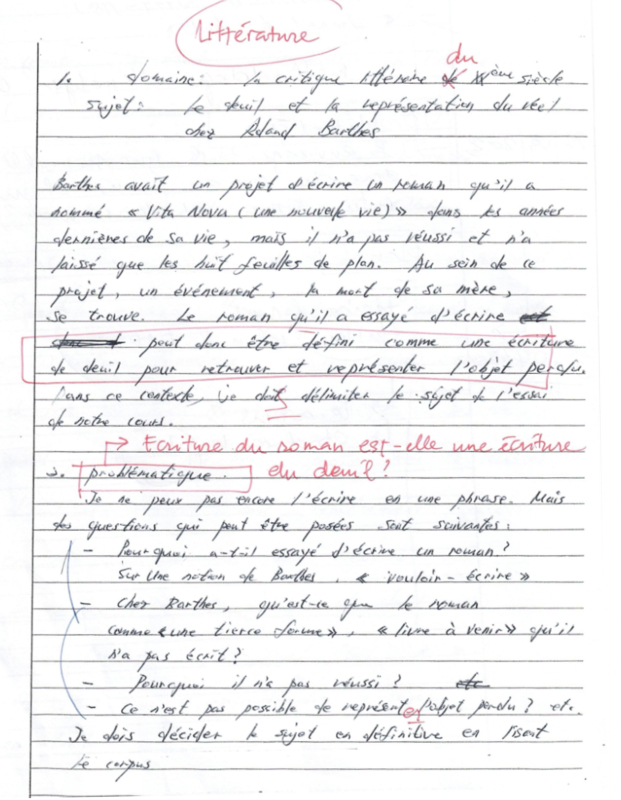 Littérature
1. domaine: la critique littéraire de du XXème siècle
sujet: le deuil et la représentation du réel
chez Roland Barthes
Barthes avait un projet d'écrire un roman qu'il a
nommé « Vita Nova (une nouvelle vie) » dans les années
dernières de sa vie, mais il n'a pas réussi et n'a
laissé que les huit feuilles de plan. Au sein de ce
projet, un événement, la mort de sa mère,
se trouve. Le roman qu'il a essayé d'écrire est
donc peut donc être défini comme une écriture
de deuil pour retrouver et représenter l'objet perdu.
Dans ce contexte, je doit délimiter le sujet de l'essai
de notre cours.
→ Ecriture du roman est-elle une écriture
2. problématique. du deuil?
Je ne peux pas encore l'écrire en une phrase. Mais
des questions qui peut être posées sont suivantes:
- Pourquoi a-t-il essayé d'écrire un roman?
Sur une notion de Barthes, « vouloir-écrire »
- Chez Barthes, qu'est-ce que le roman
comme « une tierce forme », « livre à venir » qu'il
n'a pas écrit?
- Pourquoi il n'a pas réussi? etc
- Ce n'est pas possible de représenter l'objet perdu? etc.
Je dois décider le sujet en définitive en lisant
le corpus